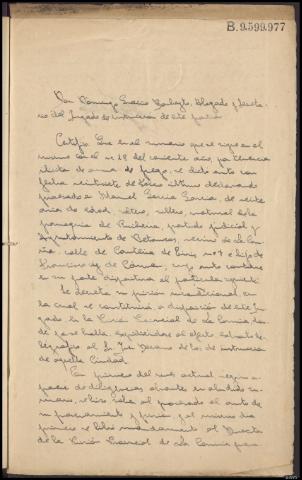 B.9.599.977
Don Domingo Abogado y Secreta-
rio del Juzgado de instrucción de este partido
Certifico: Que en el sumario que se sigue en el
mismo con el nº 18 del corriente año, por tenencia
ilícita de arma de fuego, se dictó auto con
fecha veintisiete de último declarando
procesado a Manuel García García, de veinte
años de edad, soltero, natural de la
parroquia de partido judicial y
Ayuntamiento de Betanzos, vecino de La Coru-
ña, calle de nº 4 e hijo de
Francisco y de cuyo auto contiene
en su parte dispositiva el particular siguiente
Se decreta su prisión incondicional, en
la cual se constituirá a disposición de este Juz-
gado en la Cárcel Provincial de La Coruña don-
de ya se halla, expidiéndose al efecto exhorto te-
legráfico al Sr. Juez Decano de los de instrucción
de aquella Ciudad.
En primero del mes actual, según a-
parece de diligencias obrantes en aludido su-
mario, se hizo saber al procesado el auto de
su procesamiento y prisión, y el mismo día
primero se libró mandamiento al Director
de la Prisión Provincial de La Coruña para